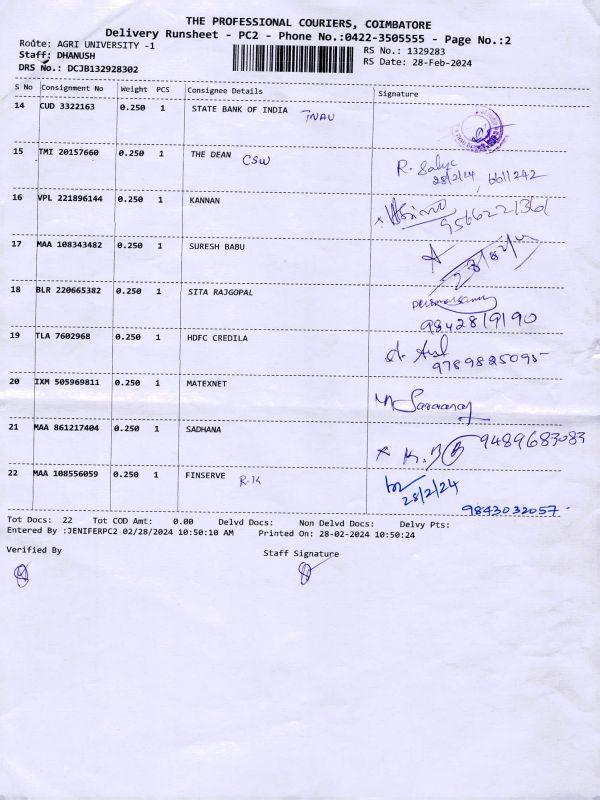 THE PROFESSIONAL COURIERS, COIMBATORE
Delivery Runsheet - PC2 - Phone No.:0422-3505555 - Page No.:2
Route: AGRI UNIVERSITY -1 RS No.: 1329283
Staff: DHANUSH RS Date: 28-Feb-2024
DRS No.: DCJB132928302
S No Consignment No Weight PCS Consignee Details Signature
14 CUD 3322163 0.250 1 STATE BANK OF INDIA TNAU
15 TMI 20157660 0.250 1 THE DEAN CSW R.
28/2/24, 6611242
16 VPL 221896144 0.250 1 KANNAN
9566221361
17 MAA 108343482 0.250 1 SURESH BABU
18 BLR 220665382 0.250 1 SITA RAJGOPAL
9842819190
19 TLA 7602968 0.250 1 HDFC CREDILA
9789825095
20 IXM 505969811 0.250 1 MATEXNET
21 MAA 861217404 0.250 1 SADHANA 9489683083
22 MAA 108556059 0.250 1 FINSERVE R.K
28/2/24
9843032057
Tot Docs: 22 Tot COD Amt: 0.00 Delvd Docs: Non Delvd Docs: Delvy Pts:
Entered By :JENIFERPC2 02/28/2024 10:50:10 AM Printed On: 28-02-2024 10:50:24
Verified By Staff Signature